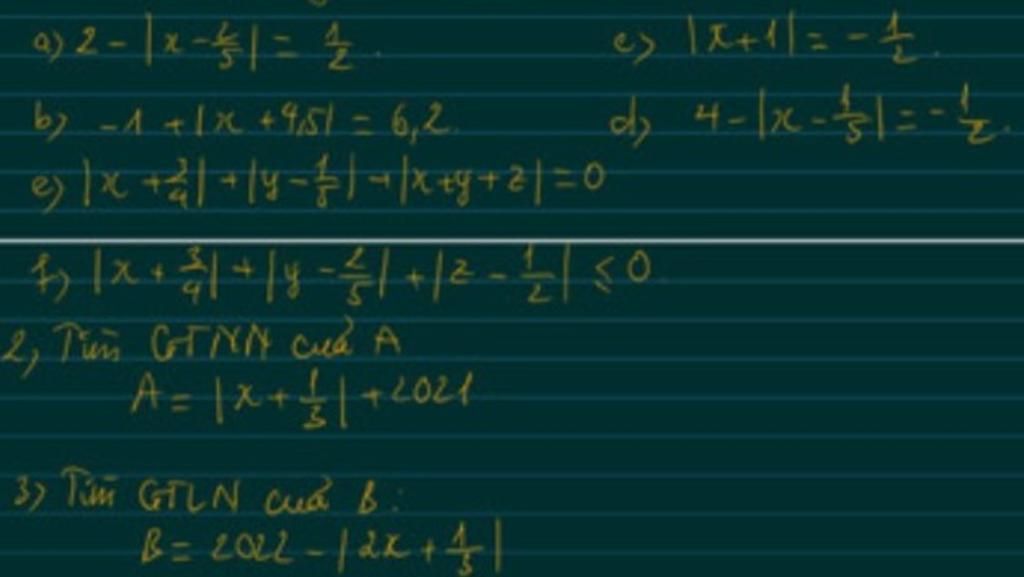 a) 2 - |x - 2/5| = 1/2.
c) |x + 1| = - 1/2.
b) -1 + |x + 4,5| = 6,2.
d) 4 - |x - 1/5| = - 1/2.
e) |x + 3/4| + |y - 1/5| + |x + y + z| = 0
f) |x + 3/4| + |y - 2/5| + |z - 1/2| ≤ 0
2, Tìm GTNN của A
A = |x + 1/3| + 2021
3) Tìm GTLN của B:
B = 2022 - |2x + 1/3|